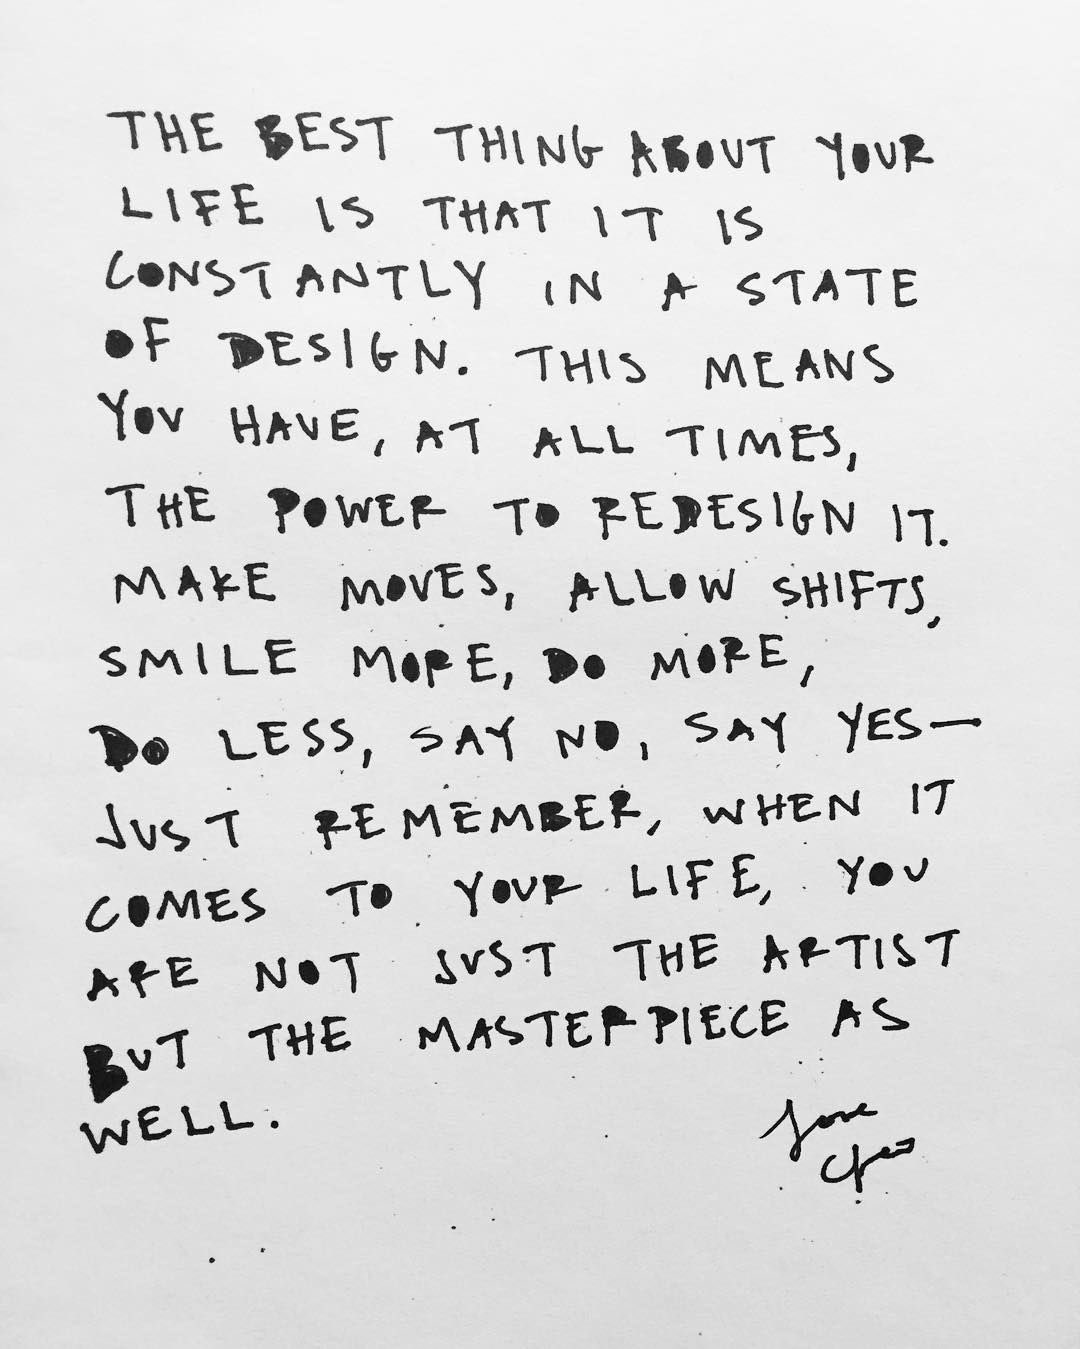 THE BEST THING ABOUT YOUR
LIFE IS THAT IT IS
CONSTANTLY IN A STATE
OF DESIGN. THIS MEANS
YOU HAVE, AT ALL TIMES,
THE POWER TO REDESIGN IT.
MAKE MOVES, ALLOW SHIFTS,
SMILE MORE, DO MORE,
DO LESS, SAY NO, SAY YES—
JUST REMEMBER, WHEN IT
COMES TO YOUR LIFE, YOU
ARE NOT JUST THE ARTIST
BUT THE MASTERPIECE AS
WELL.
love